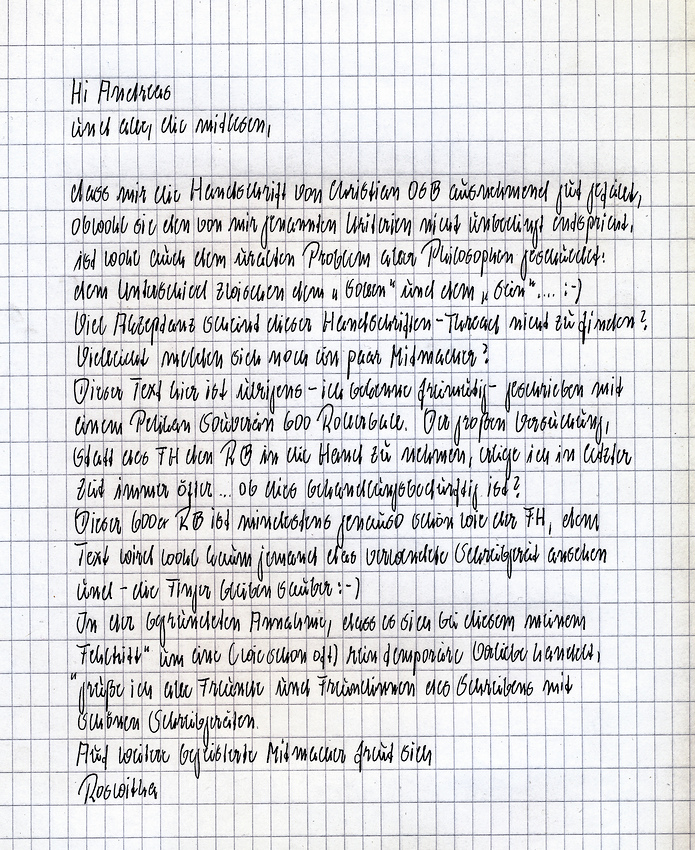 Hi Andreas
und alle, die mitlesen,
dass mir die Handschrift von Christian OSB ausnehmend gut gefällt,
obwohl sie den von mir genannten Kriterien nicht unbedingt entspricht,
ist wohl auch dem uralten Problem aller Philosophen geschuldet:
dem Unterschied zwischen dem „Sollen" und dem „Sein".... :-)
Viel Akzeptanz scheint dieser Handschriften-Thread nicht zu finden?
Vielleicht melden sich noch ein paar Mitmacher?
Dieser Text hier ist übrigens - ich bekenne freimütig - geschrieben mit
einem Pelikan Souverän 600 Rollerball. Der großen Versuchung,
statt des FH den RB in die Hand zu nehmen, erliege ich in letzter
Zeit immer öfter... ob dies behandlungsbedürftig ist?
Dieser 600er RB ist mindestens genauso schön wie der FH, dem
Text wird wohl kaum jemand das verwendete Schreibgerät ansehen
und - die Finger bleiben sauber :-)
In der begründeten Annahme, dass es sich bei diesem meinem
„Fehltritt" um eine (wie schon oft) rein temporäre Vorliebe handelt,
grüße ich alle Freunde und Freundinnen des Schreibens mit
schönen Schreibgeräten.
Auf weitere begeisterte Mitmacher freut sich
Roswitha